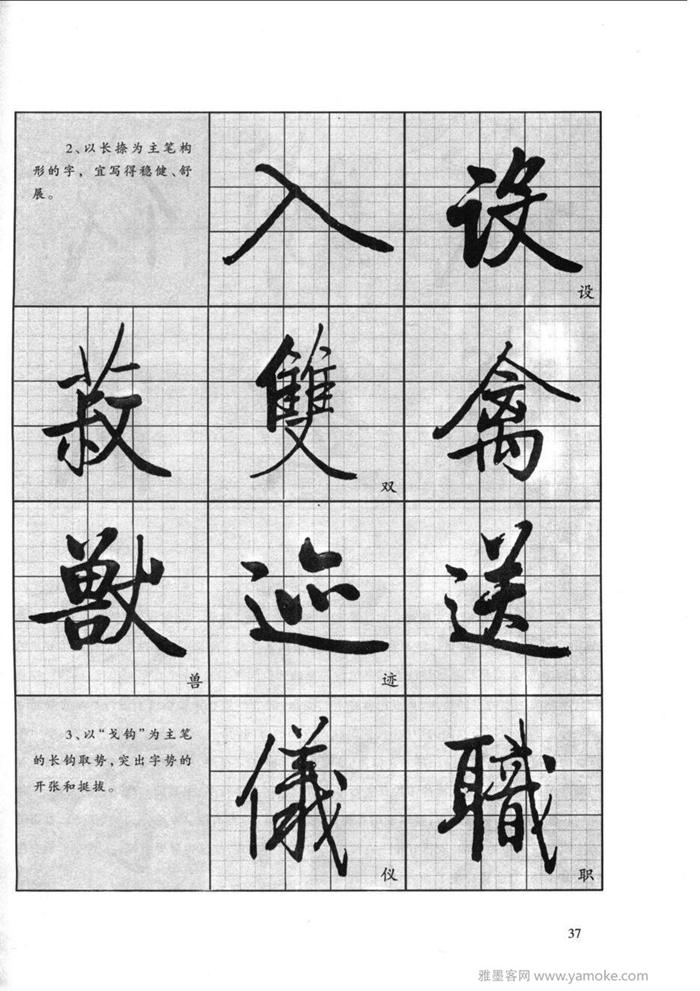 2、以长捺为主笔构
形的字，宜写得稳健、舒
展。
入
设
设
菽
雙
双
禽
獸
兽
迹
迹
送
3、以“戈钩”为主笔
的长钩取势，突出字势的
开张和挺拔。
儀
仪
職
职
37
雅墨客网 www.yamoke.com